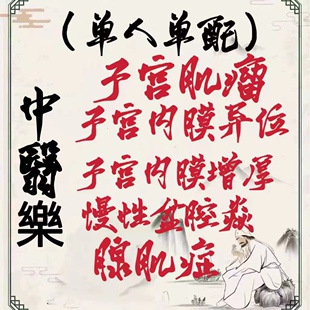 （单人单配）
中醫樂
子宫肌瘤
子宫内膜异位
子宫内膜增厚
慢性盆腔炎
腺肌症